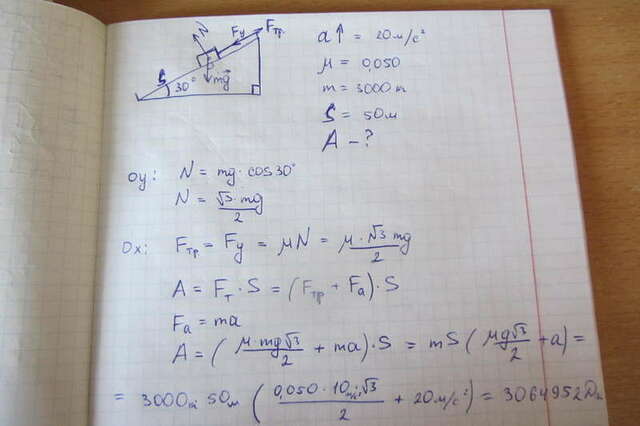 N Fу Fтр
a↑ = 20 м/с²
S 30° mg
μ = 0,050
m = 3000 кг
S = 50м
A - ?
Oy: N = mg · cos30°
N = √3 · mg / 2
Ox: Fтр = Fу = μN = μ · √3 mg / 2
A = Fт · S = (Fтр + Fa) · S
Fa = ma
A = ( μ · mg√3 / 2 + ma) · S = mS ( μg√3 / 2 + a) =
= 3000кг 50м ( 0,050 · 10 м/с² √3 / 2 + 20м/с² ) = 3064952 Дж